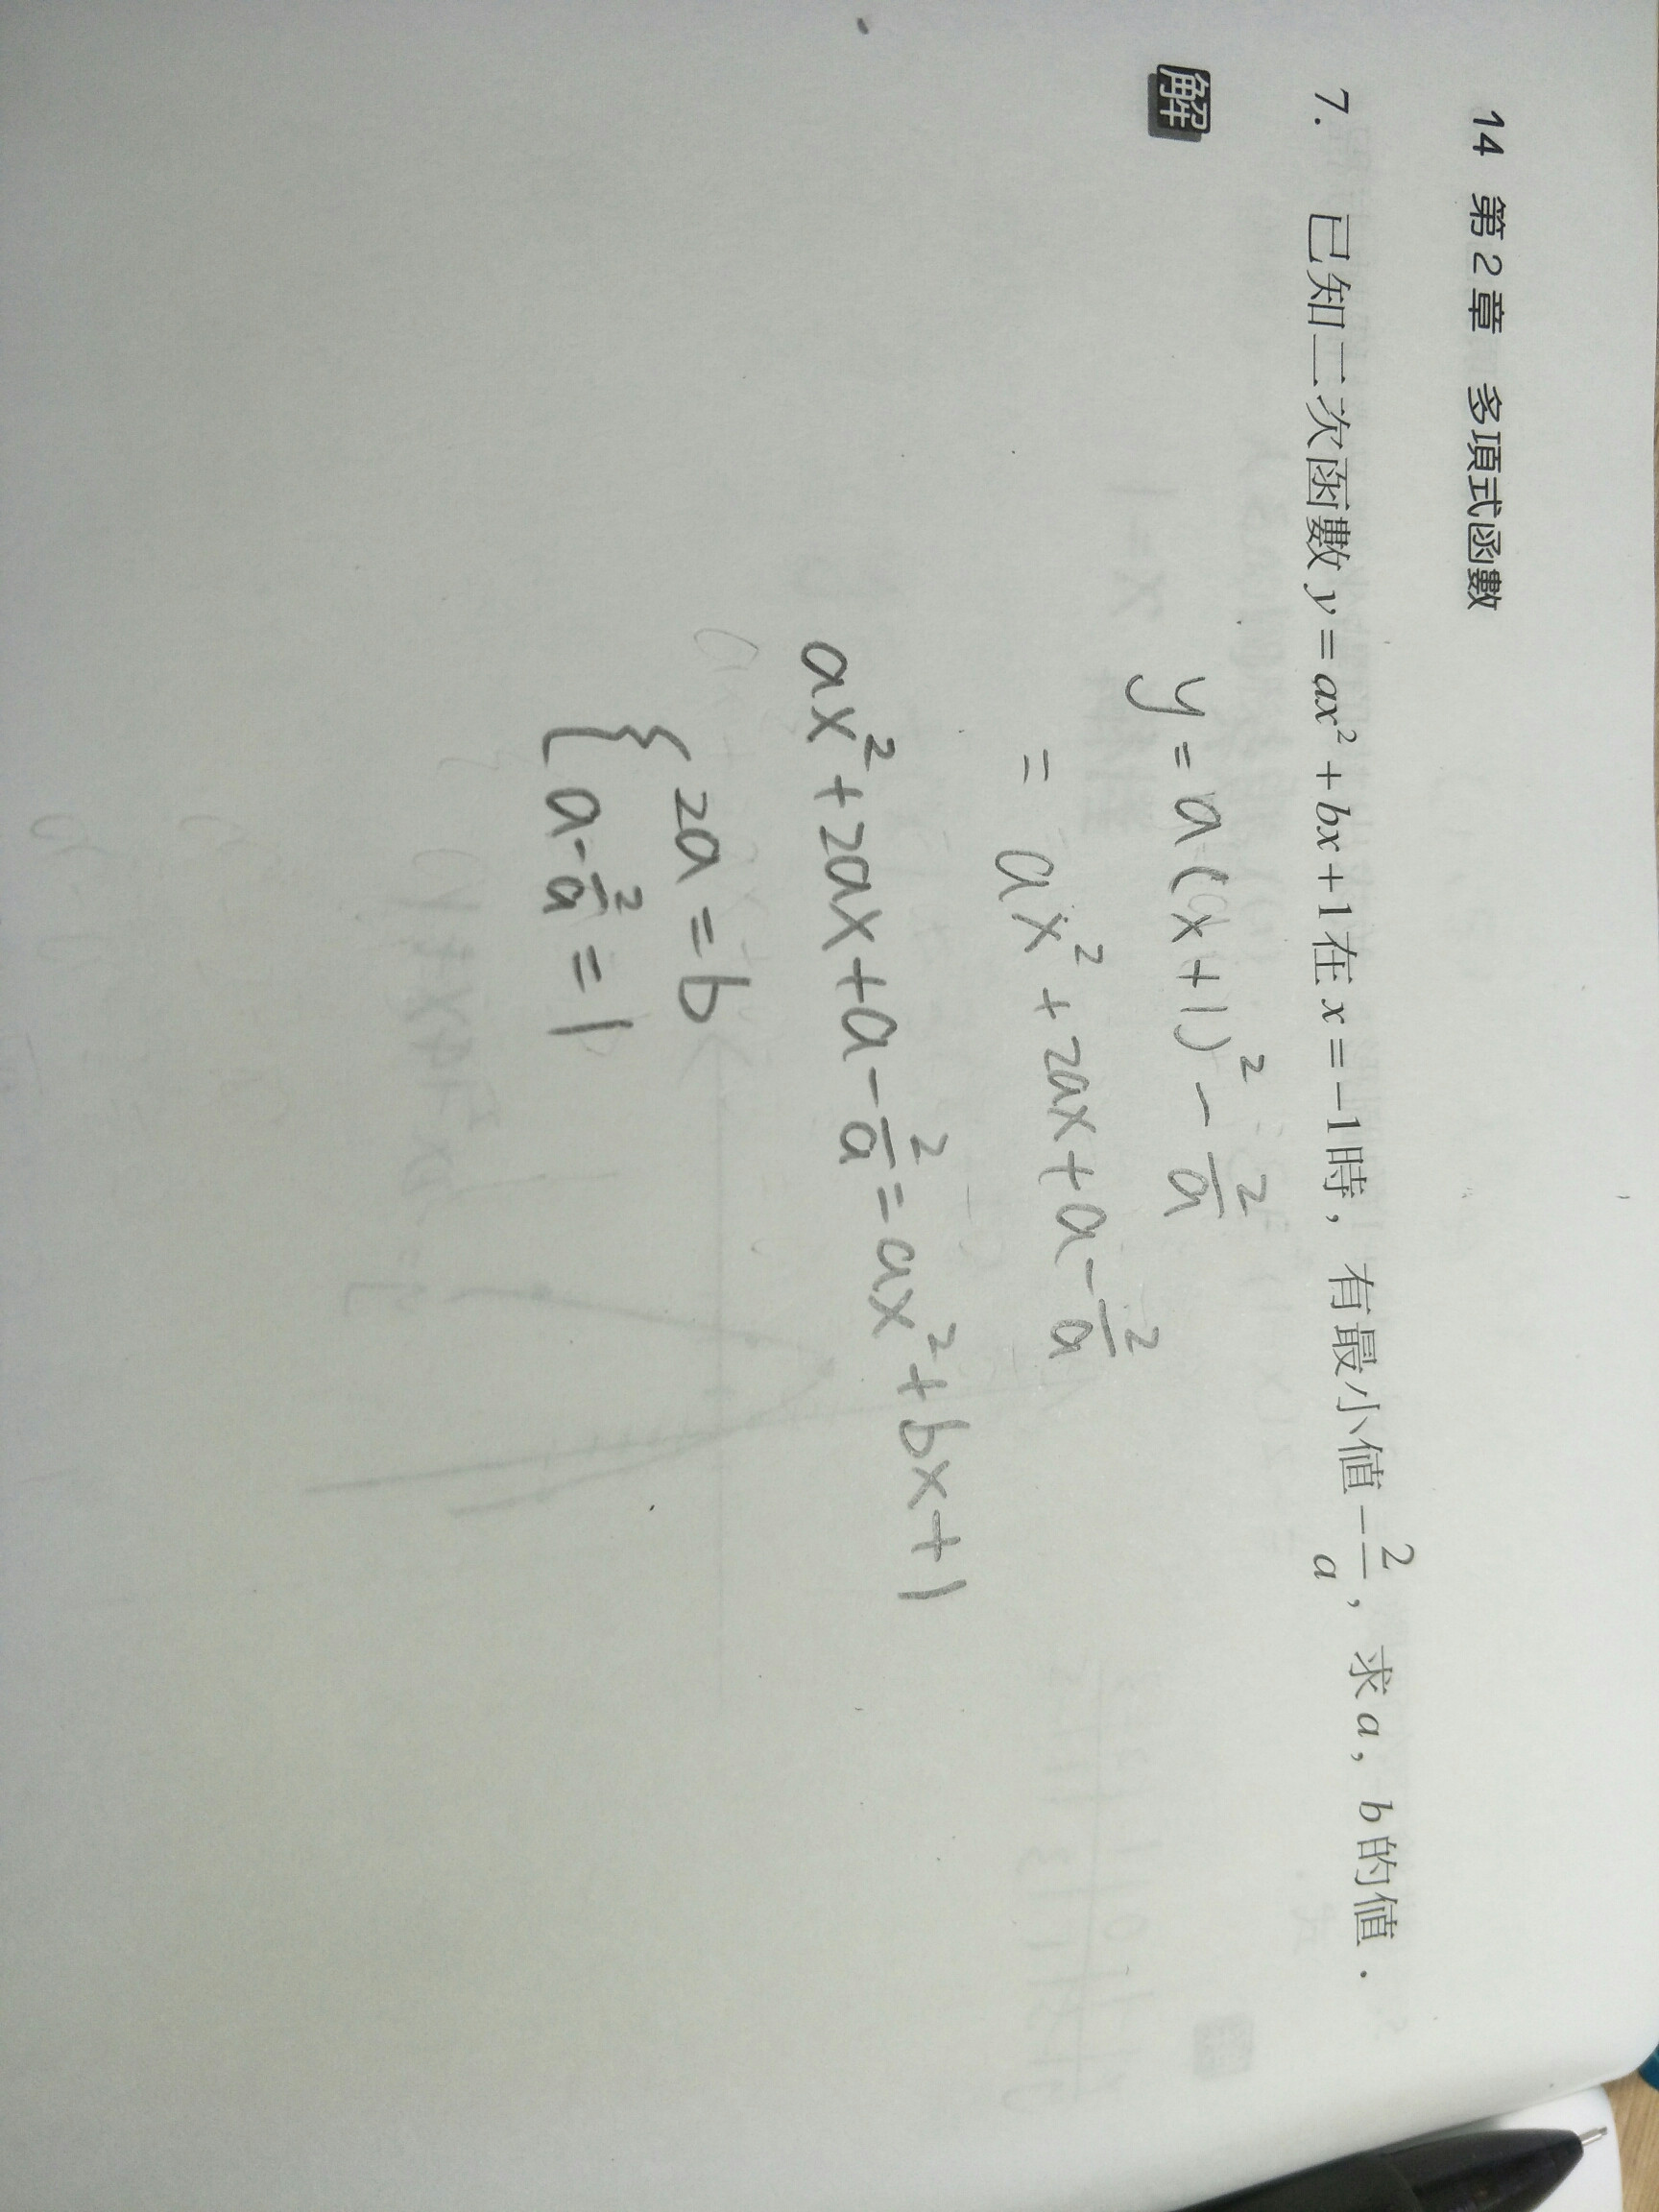 14 第2章 多項式函數
7. 已知二次函數 y = ax² + bx + 1 在 x = -1 時, 有最小值 -2/a, 求 a, b 的值.
解
y = a(x+1)² - 2/a
= ax² + 2ax + a - 2/a
ax² + 2ax + a - 2/a = ax² + bx + 1
{ 2a = b
a - 2/a = 1